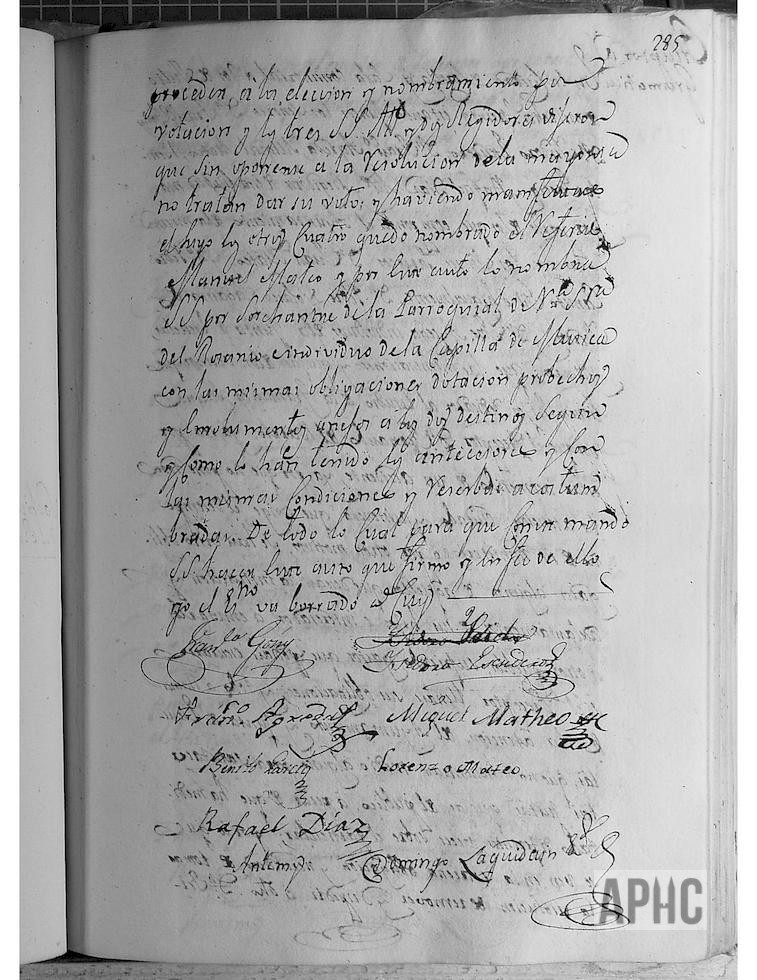 285
proceden, a la eleccion y nombramiento por
votacion y los tres SS. Alc. y dos Regidores dijeron
que sin oponerse a la resolucion de la mayoria
no tratan dar su voto, y haviendo manifestado
el suyo los otros quatro quedo nombrado el referido
Manuel Mateo y por este auto lo nombra
SS por Sochantre de la Parroquial de Nra Sra
del Rosario e individuo de la Capilla de Musica
con las mismas obligaciones dotacion probechos
y Emolumentos anejos a los dos destinos segun
y como lo han tenido los antecesores y con
las mismas Condiciones y reserbas acostum
bradas. De todo lo Cual para que Conste mando
SS hacer este auto que firmo y en fee de ello
yo el Esno va borrado
Isidro Escudero
Miguel Matheo
Benito Garcia
Lorenzo Mateo
Rafael Diaz
Antemy
Domingo
APHC